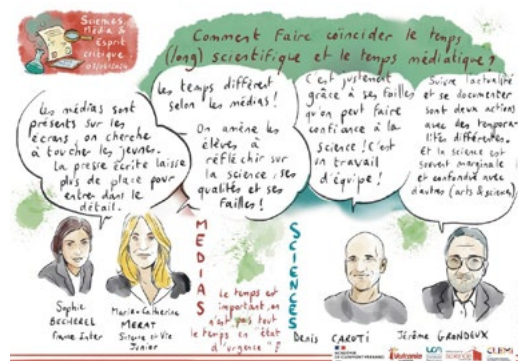 Sciences,
Média &
Esprit
critique
Comment faire coïncider le temps
(long) scientifique et le temps médiatique ?
Les médias sont
présents sur les
écrans, on cherche
à toucher les jeunes.
La presse écrite laisse
plus de place pour
entrer dans le
détail.
Les temps diffèrent
selon les médias !
On amène les
élèves à
réfléchir sur
la science, ses
qualités et ses
failles !
C'est justement
grâce à ses failles
qu'on peut faire
confiance à la
science ! C'est
un travail
d'équipe !
Suivre l'actualité
et se documenter
sont deux actions
avec des tempora-
lités différentes.
Et la science est
souvent marginale
et confondue avec
d'autres (arts & sciences)
MEDIAS
SCIENCES
le temps est
important, on
n'est pas tout
le temps en "état
d'urgence" !
Sophie
BECHEREL
France Inter
Marie-Catherine
MERAT
Science et Vie
Junior
Denis CAROTI
Jérôme GRONDEUX